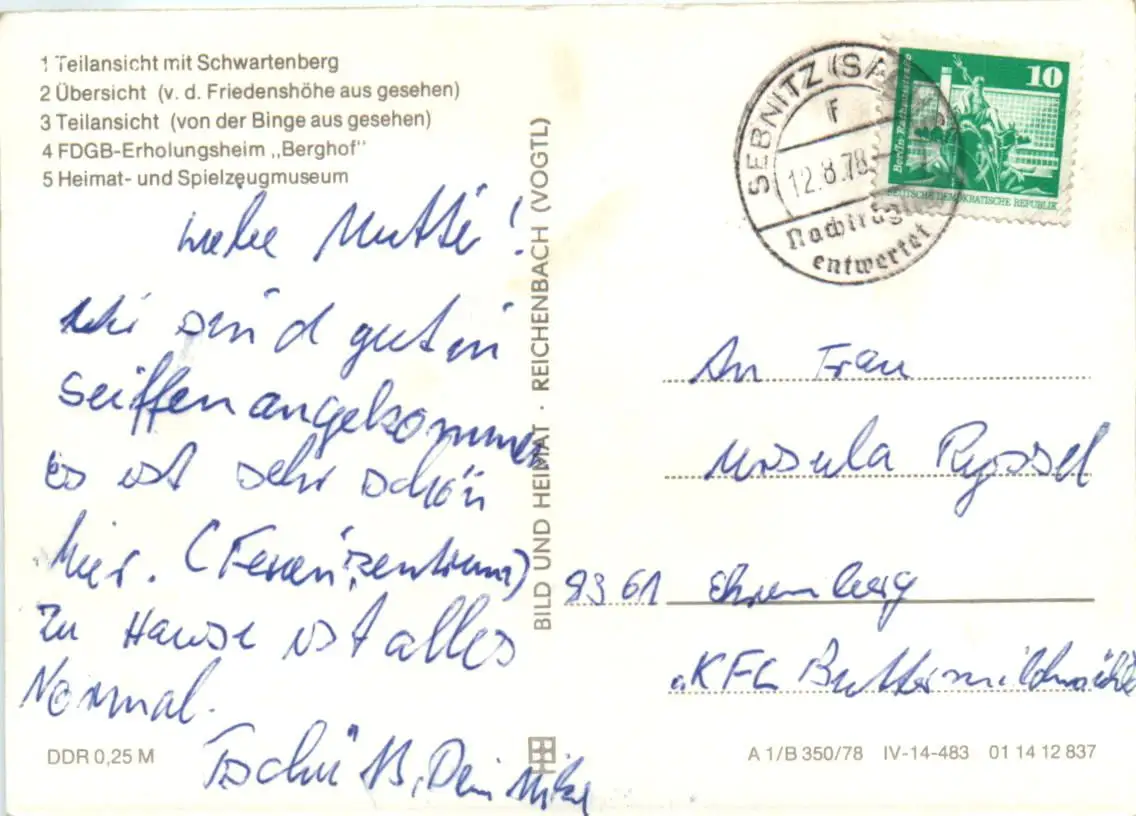 1 Teilansicht mit Schwartenberg
2 Übersicht (v. d. Friedenshöhe aus gesehen)
3 Teilansicht (von der Binge aus gesehen)
4 FDGB-Erholungsheim „Berghof"
5 Heimat- und Spielzeugmuseum
Liebe Mutti!
Wir sind gut in
Seiffen angekommen
Es ist sehr schön
hier. (Ferienzentrum)
Zu Hause ist alles
Normal.
Tschü
Dein Mike
DDR 0,25 M
BILD UND HEIMAT · REICHENBACH (VOGTL)
SEBNITZ (SA
F
12.8.78
Nachträg
entwertet
10
Berlin-Rathausstraße
DEUTSCHE DEMOKRATISCHE REPUBLIK
An Frau
Ursula Ryssel
9361 Ehrenberg
KFL Buttermilch
A 1/B 350/78 IV-14-483 01 14 12 837